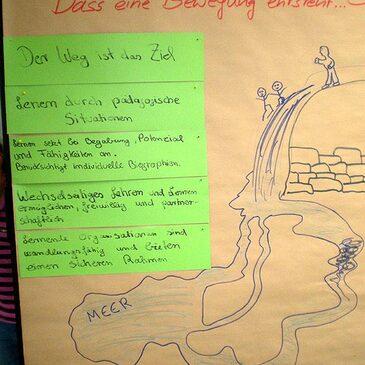 Dass eine Bewegung entsteht...
Der Weg ist das Ziel
Lernen durch pädagogische
Situationen
Lernen setzt bei Begabung, Potencial
und Fähigkeiten an.
Berücksichtigt individuelle Biographien.
Wechselseitiges Lehren und Lernen
ermöglichen, freiwillig und partner-
schaftlich
Lernende Organisationen sind
wandlungsfähig und bieten
einen sicheren Rahmen
MEER